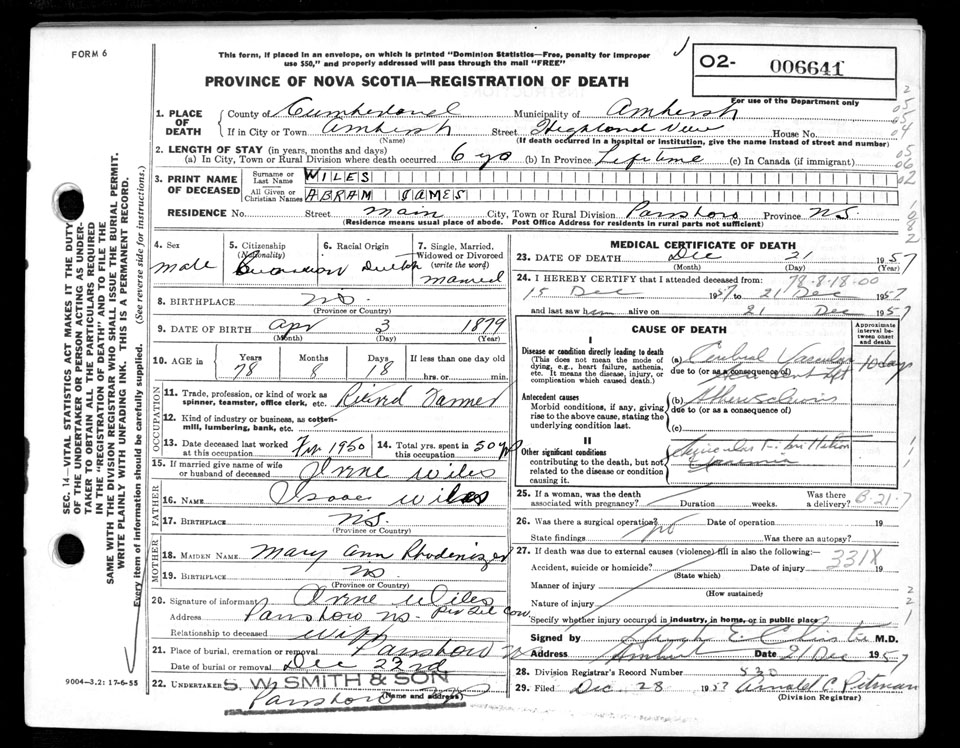 FORM 6
This form, if placed in an envelope, on which is printed "Dominion Statistics—Free, penalty for improper
use $50," and properly addressed will pass through the mail "FREE"
PROVINCE OF NOVA SCOTIA—REGISTRATION OF DEATH
O2- 006641
For use of the Department only
1. PLACE OF DEATH
County of Cumberland Municipality of Amherst
If in City or Town Amherst Street Highland View House No.
(Name) (If death occurred in a hospital or institution, give the name instead of street and number)
2. LENGTH OF STAY (in years, months and days)
(a) In City, Town or Rural Division where death occurred 6 (b) In Province Lifetime (c) In Canada (if immigrant)
3. PRINT NAME OF DECEASED
Surname or Last Name WILES
All Given or Christian Names ABRAM JAMES
RESIDENCE No. Street Main City, Town or Rural Division Parrsboro Province N.S.
(Residence means usual place of abode. Post Office Address for residents in rural parts not sufficient)
4. Sex 5. Citizenship (Nationality) 6. Racial Origin 7. Single, Married, Widowed or Divorced (write the word)
Male Canadian Dutch Married
8. BIRTHPLACE N.S.
(Province or Country)
9. DATE OF BIRTH Apr 3 1879
(Month) (Day) (Year)
10. AGE in Years Months Days If less than one day old
78 8 18 hrs. or min.
OCCUPATION
11. Trade, profession, or kind of work as spinner, teamster, office clerk, etc. Retired Farmer
12. Kind of industry or business, as cotton-mill, lumbering, bank, etc.
13. Date deceased last worked at this occupation 1950 14. Total yrs. spent in this occupation 50
15. If married give name of wife or husband of deceased Irene Wiles
FATHER
16. NAME Isaac Wiles
17. BIRTHPLACE N.S.
(Province or Country)
MOTHER
18. MAIDEN NAME Mary Ann Rhodenizer
19. BIRTHPLACE N.S.
(Province or Country)
20. Signature of informant Irene Wiles
Address Parrsboro N.S.
Relationship to deceased Wife
21. Place of burial, cremation or removal Parrsboro
Date of burial or removal Dec 23rd
22. UNDERTAKER S. W. SMITH & SON
(Name and address)
Parrsboro NS
MEDICAL CERTIFICATE OF DEATH
23. DATE OF DEATH Dec 21 1957
(Month) (Day) (Year)
24. I HEREBY CERTIFY that I attended deceased from: 78-8-18-00
15 Dec 1957 to 21 Dec 1957
and last saw him alive on 21 Dec 1957
CAUSE OF DEATH
Approximate interval between onset and death
I
Disease or condition directly leading to death
(This does not mean the mode of dying, e.g., heart failure, asthenia, etc. It means the disease, injury, or complication which caused death.)
(a) Cerebral Vascular 10 days
due to (or as a consequence of)
Antecedent causes
Morbid conditions, if any, giving rise to the above cause, stating the underlying condition last.
(b)
due to (or as a consequence of)
(c)
II
Other significant conditions
contributing to the death, but not related to the disease or condition causing it
25. If a woman, was the death associated with pregnancy? Duration weeks. Was there a delivery?
B-21-7
26. Was there a surgical operation? No Date of operation 19
State findings Was there an autopsy?
27. If death was due to external causes (violence) fill in also the following: 331X
Accident, suicide or homicide? Date of injury 19
(State which)
Manner of injury
(How sustained)
Nature of injury
Specify whether injury occurred in industry, in home, or in public place?
Signed by Hugh E. Christie M.D.
Address Amherst Date 21 Dec 1957
28. Division Registrar's Record Number 530
29. Filed Dec. 28 1957 Arnold C Pitman
(Division Registrar)
SEC. 14—VITAL STATISTICS ACT MAKES IT THE DUTY
OF THE UNDERTAKER OR PERSON ACTING AS UNDER-
TAKER TO OBTAIN ALL THE PARTICULARS REQUIRED
IN THE "REGISTRATION OF DEATH" AND TO FILE THE
SAME WITH THE DIVISION REGISTRAR WHO SHALL ISSUE THE BURIAL PERMIT.
WRITE PLAINLY WITH UNFADING INK. THIS IS A PERMANENT RECORD.
Every item of information should be carefully supplied. (See reverse side for instructions.)
9004—3.2: 17-6-55